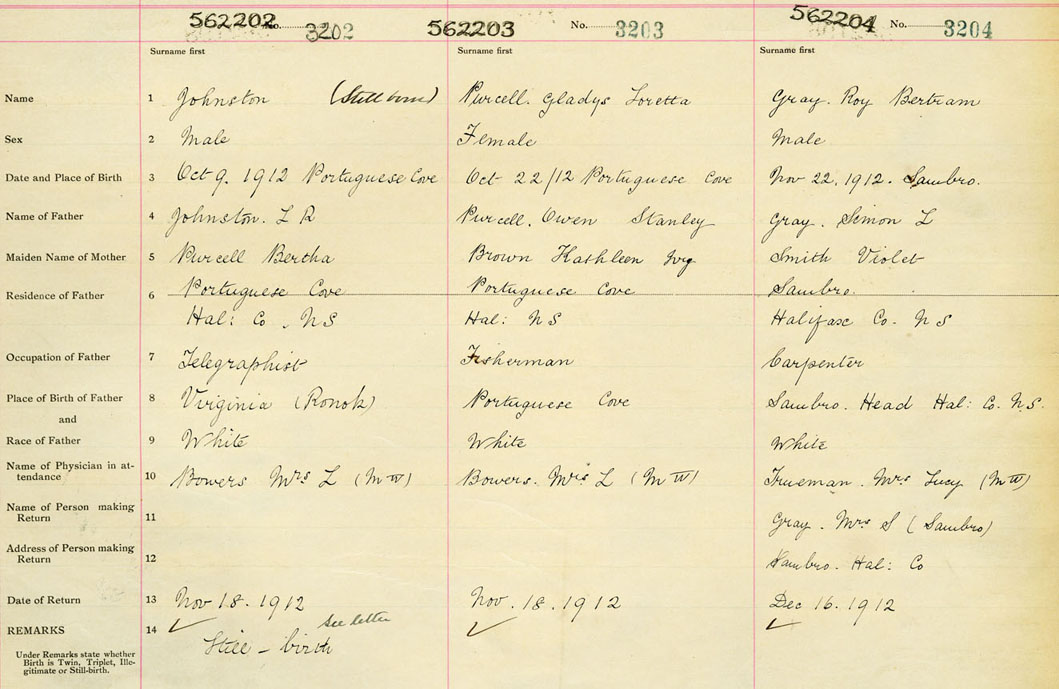 562202 No. 3202 562203 No. 3203 562204 No. 3204
Surname first Surname first Surname first
Name 1 Johnston (Still born) Purcell. Gladys Loretta Gray. Roy Bertram
Sex 2 Male Female Male
Date and Place of Birth 3 Oct 9. 1912 Portuguese Cove Oct 22/12 Portuguese Cove Nov 22. 1912. Sambro.
Name of Father 4 Johnston. L R Purcell. Owen Stanley Gray. Simon L
Maiden Name of Mother 5 Purcell Bertha Brown Kathleen Smith Violet
Residence of Father 6 Portuguese Cove Portuguese Cove Sambro.
Hal: Co. NS Hal: NS Halifax Co. NS
Occupation of Father 7 Telegraphist Fisherman Carpenter
Place of Birth of Father 8 Virginia (Ronok) Portuguese Cove Sambro. Head Hal: Co. N.S.
and
Race of Father 9 White White White
Name of Physician in at-
tendance 10 Bowers Mrs L (MW) Bowers. Mrs L (MW) Trueman. Mrs Lucy (MW)
Name of Person making
Return 11 Gray. Mrs S (Sambro)
Address of Person making
Return 12 Sambro. Hal: Co
Date of Return 13 Nov 18. 1912 Nov. 18. 1912 Dec 16. 1912
REMARKS 14 ✓ see letter ✓ ✓
Still - birth
Under Remarks state whether
Birth is Twin, Triplet, Ille-
gitimate or Still-birth.